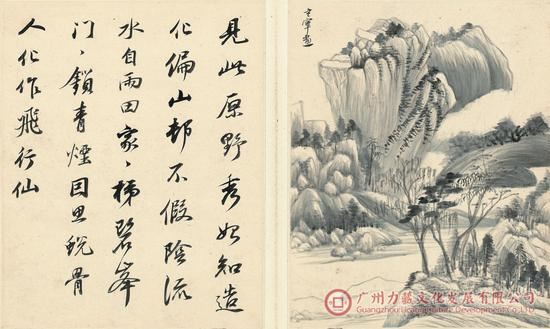 見此原野秀始知造
化偏山邨不假陰流
水自雨田家〻梯碧峯
門〻鎖青煙因思蛻骨
人化作飛行仙
玄宰畫
广州力 文化发展有限公司
Guangzhou Development Co.,LTD